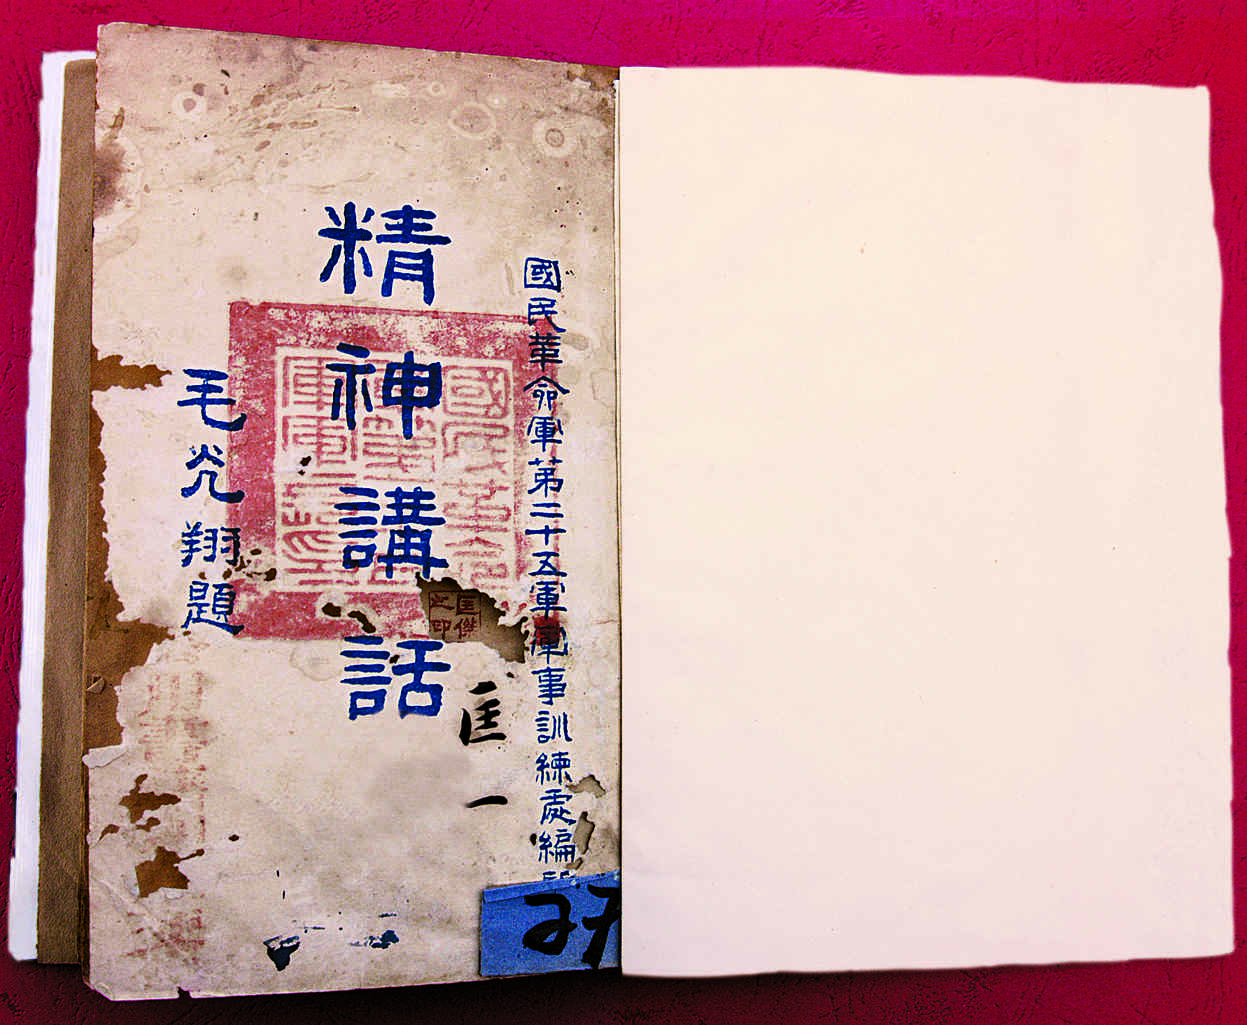 國民革命軍第二十五軍軍事訓練處編
精神講話
毛光翔題
匡一
匡傑之印